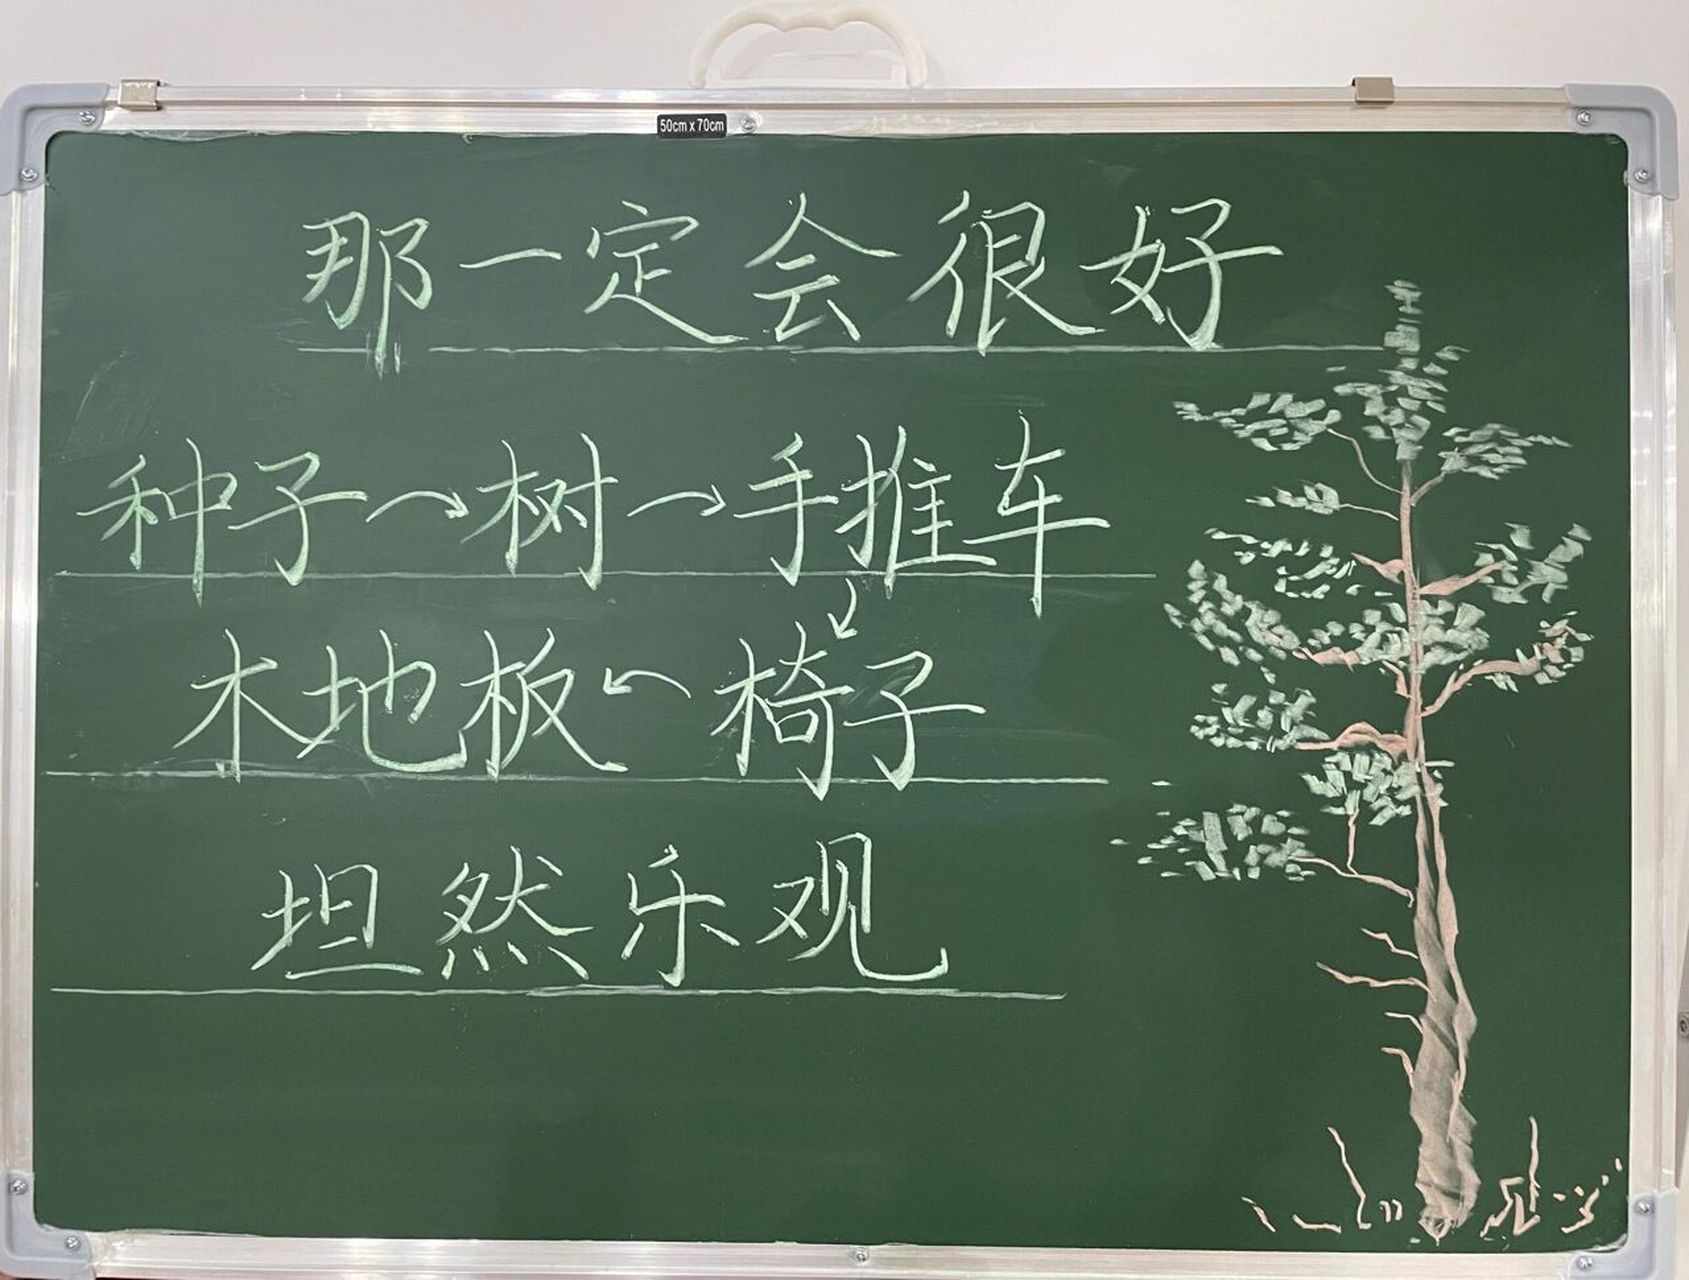 50cm x 70cm
那一定会很好
种子→树→手推车
↓
木地板←椅子
坦然乐观